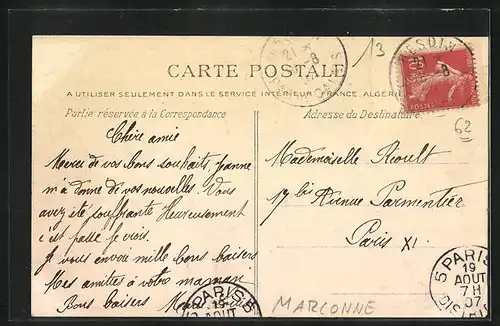 CARTE POSTALE
A UTILISER SEULEMENT DANS LE SERVICE INTÉRIEUR (FRANCE, ALGÉRIE
Partie réservée à la Correspondance
Adresse du Destinataire
13
62
Chère amie
Merci de vos bons souhaits, Jeanne
m'a donné de vos nouvelles. Vous
avez été souffrante Heureusement
c'est passé je crois.
Je vous envoie mille bons baisers
Mes amitiés à votre maman
Bons baisers
Mademoiselle Rioult
17 bis Avenue Parmentier
Paris XI
MARCONNE
5 PARIS
19
AOUT
7H
07
PARIS
AOUT